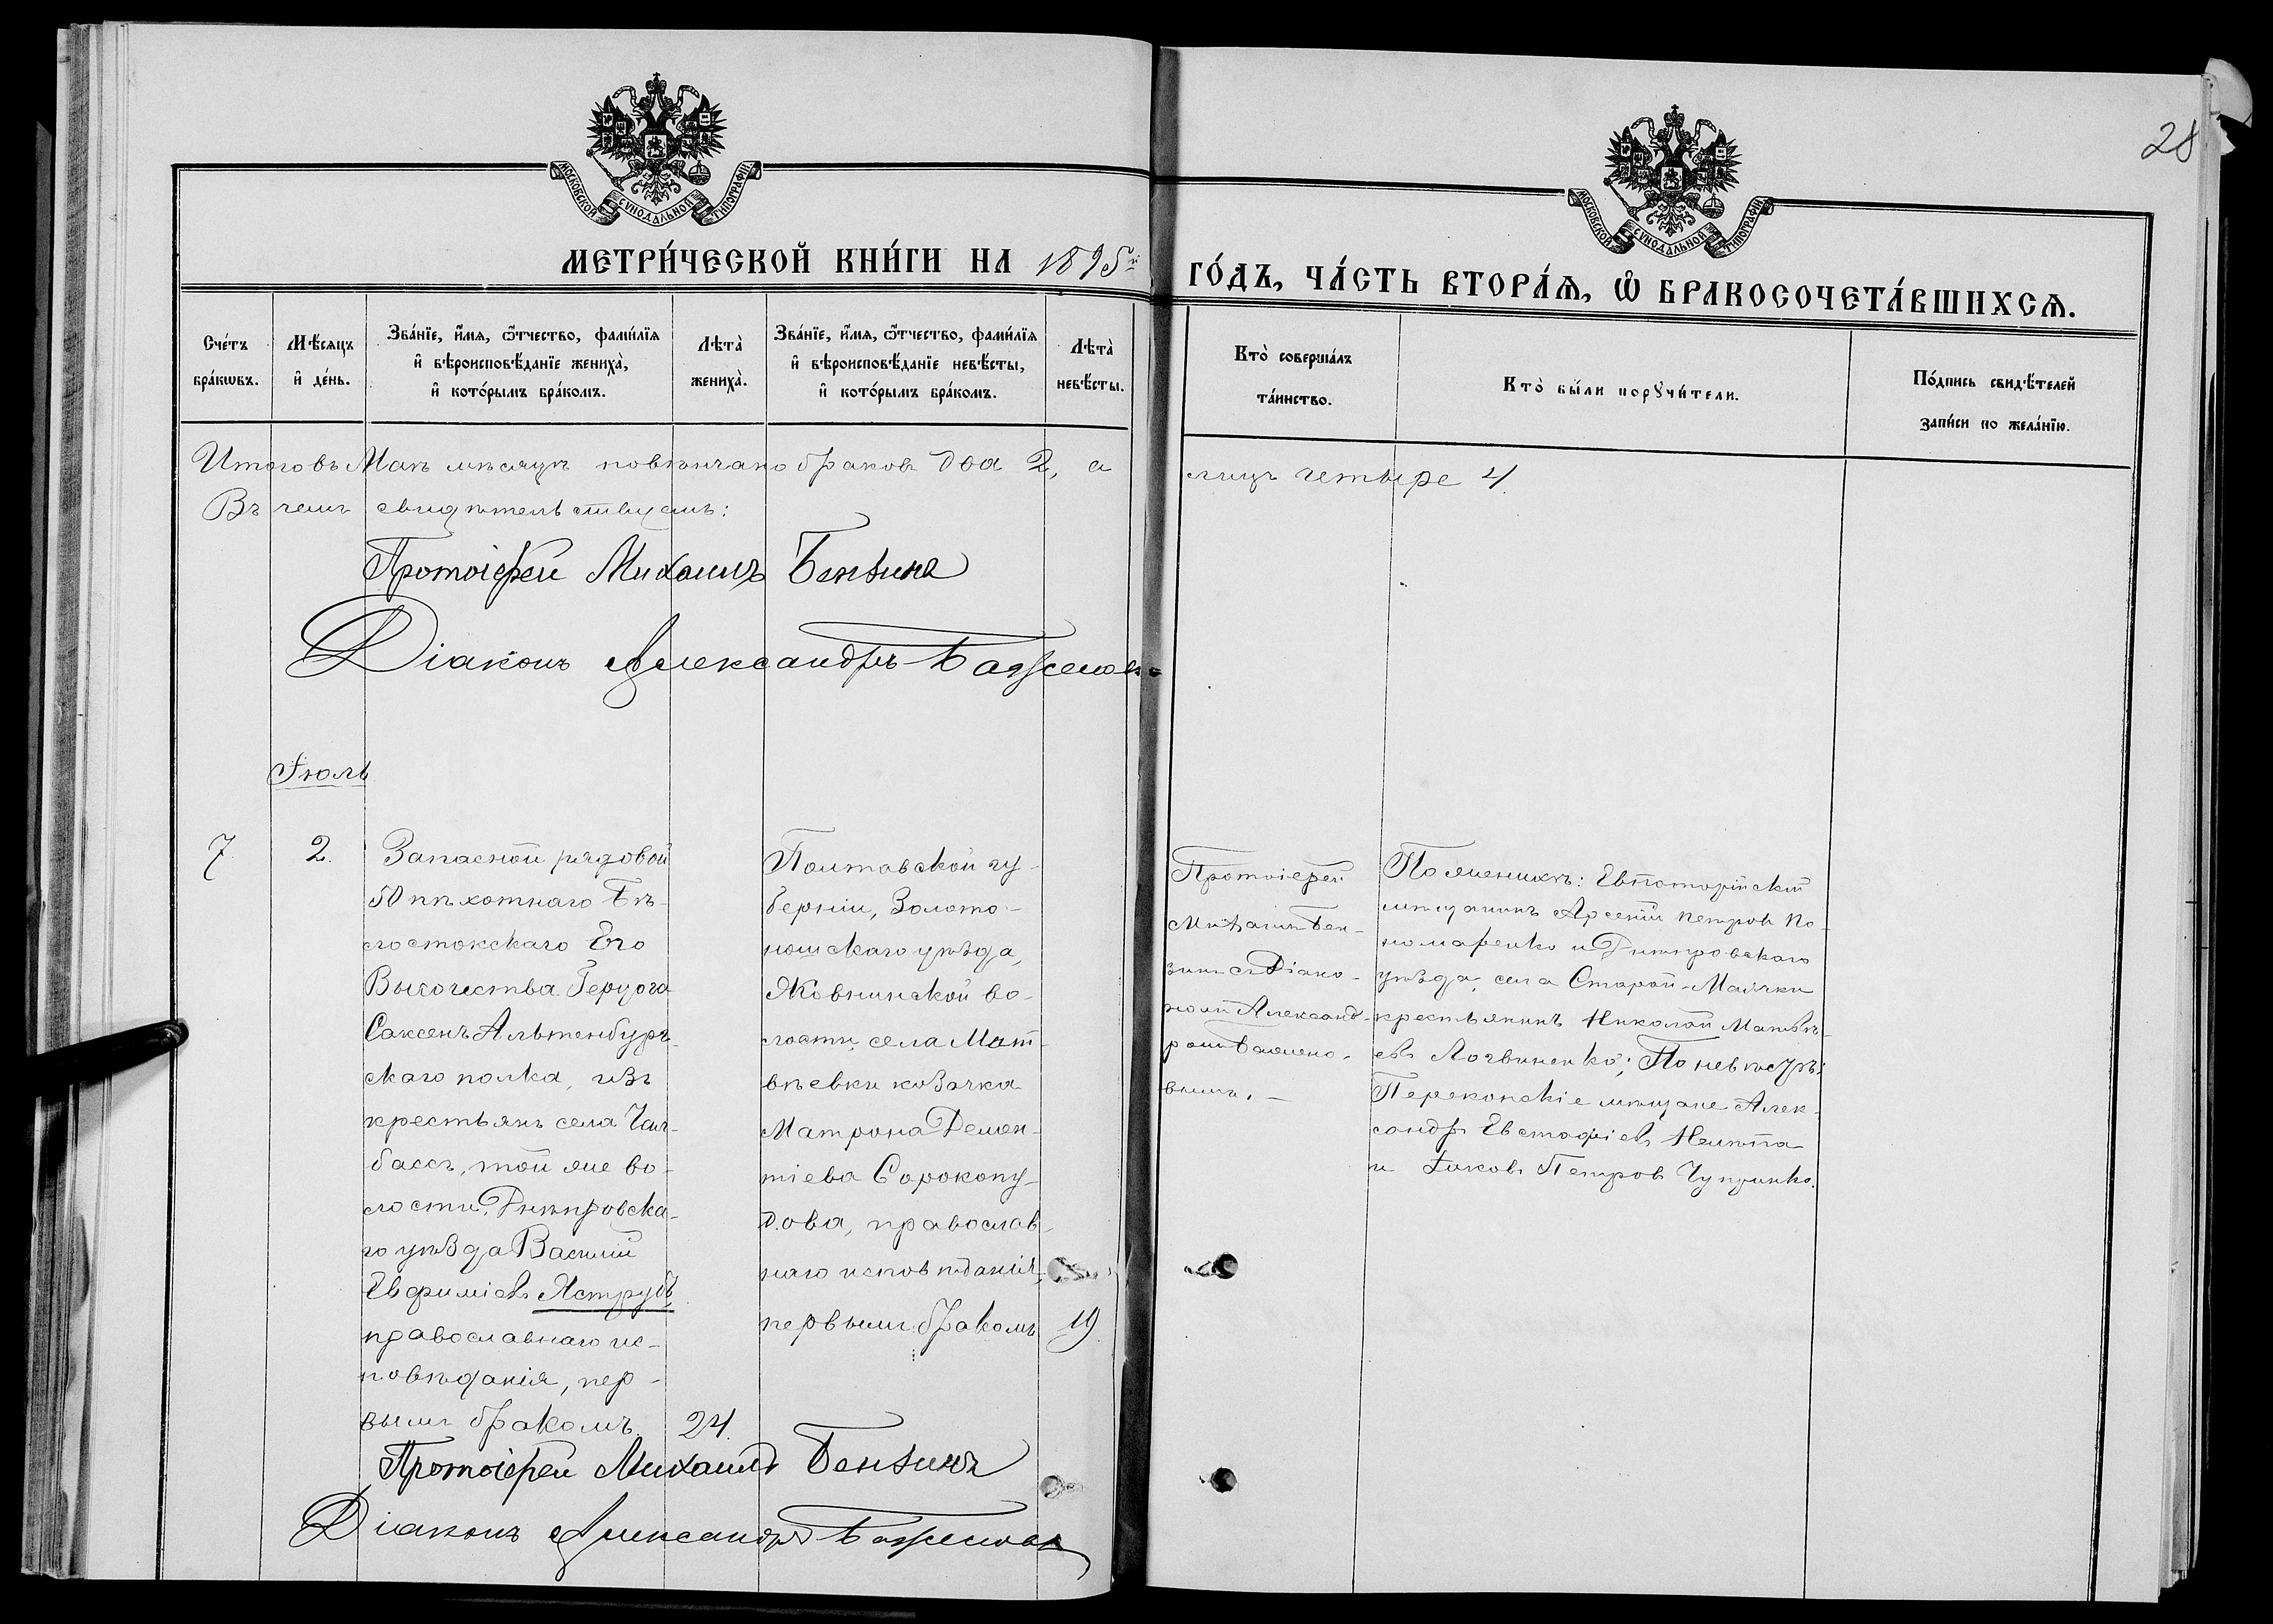 28
МОСКОВСКОЙ СѴНОДАЛЬНОЙ ТИПОГРАФІИ
МОСКОВСКОЙ СѴНОДАЛЬНОЙ ТИПОГРАФІИ
МЕТРИ́ЧЕСКОЙ КНИ́ГИ НА 1895й ГО́ДЪ, ЧА́СТЬ ВТОРА́Ѧ, Ѽ БРАКОСОЧЕТА́ВШИХСѦ.
Сче́тъ
бра́кѡвъ.
Мѣ́сяцъ
и҆ де́нь.
Зва́нїе, и҆́мѧ, ѻ҆́тчество, фами́лїѧ
и҆ вѣроисповѣ́данїе жениха̀,
и҆ кото́рымъ бра́комъ.
Лѣта̀
жениха̀.
Зва́нїе, и҆́мѧ, ѻ҆́тчество, фами́лїѧ
и҆ вѣроисповѣ́данїе невѣ́сты,
и҆ кото́рымъ бра́комъ.
Лѣта̀
невѣ́сты.
Кто̀ соверша́лъ
та́инство.
Кто̀ бы́ли порꙋчи́тели.
По́дпись свидѣ́телей
запи́си по жела́нїю.
Итого въ Маѣ мѣсяцѣ повѣнчано браковъ два 2, а лицъ четыре 4.
Въ чемъ свидѣтельствуемъ:
Протоіерей Михаилъ Бензинъ
Діаконъ Александръ Баженовъ
Іюль
7.
2.
Запасной рядовой
50 пѣхотнаго Бѣ-
лостокскаго Его
Высочества Герцога
Саксенъ Альтенбург-
скаго полка, изъ
крестьянъ села Чал-
бассъ, той же во-
лости, Днѣпровска-
го уѣзда Василій
Евфиміевъ Яструбъ,
православнаго ис-
повѣданія, пер-
вымъ бракомъ.
24.
Полтавской гу-
берніи, Золото-
ношскаго уѣзда,
волости, села Мат-
вѣевки козачка
Матрона Демен-
тіева Сорокопу-
дова, православ-
наго исповѣданія,
первымъ бракомъ
19.
Протоіерей
Михаилъ Бен-
зинъ съ Діако-
номъ Александ-
ромъ Бажено-
вымъ. —
По женихѣ: Евпаторійскій
мѣщанинъ Арсеній Петровъ По-
номаренко и Днѣпровскаго
уѣзда, села Старой-Маячки
крестьянинъ Николай Матвѣ-
евъ Логвиненко; По невѣстѣ:
Перекопскіе мѣщане Алек-
сандръ Евстафіевъ
и Іаковъ Петровъ
Протоіерей Михаилъ Бензинъ
Діаконъ Александръ Баженовъ